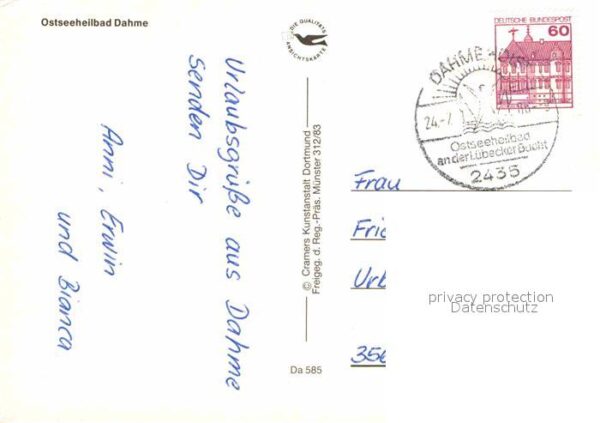 Ostseeheilbad Dahme
DIE QUALITÄTS
ANSICHTSKARTE
Urlaubsgrüße aus Dahme
senden Dir
Anni, Erwin
und Bianca
© Cramers Kunstanstalt Dortmund
Freigeg. d. Reg.-Präs. Münster 312/83
Da 585
DEUTSCHE BUNDESPOST
60
DAHME
24.-7
Ostseeheilbad
an der Lübecker Bucht
2435
Frau
privacy protection
Datenschutz